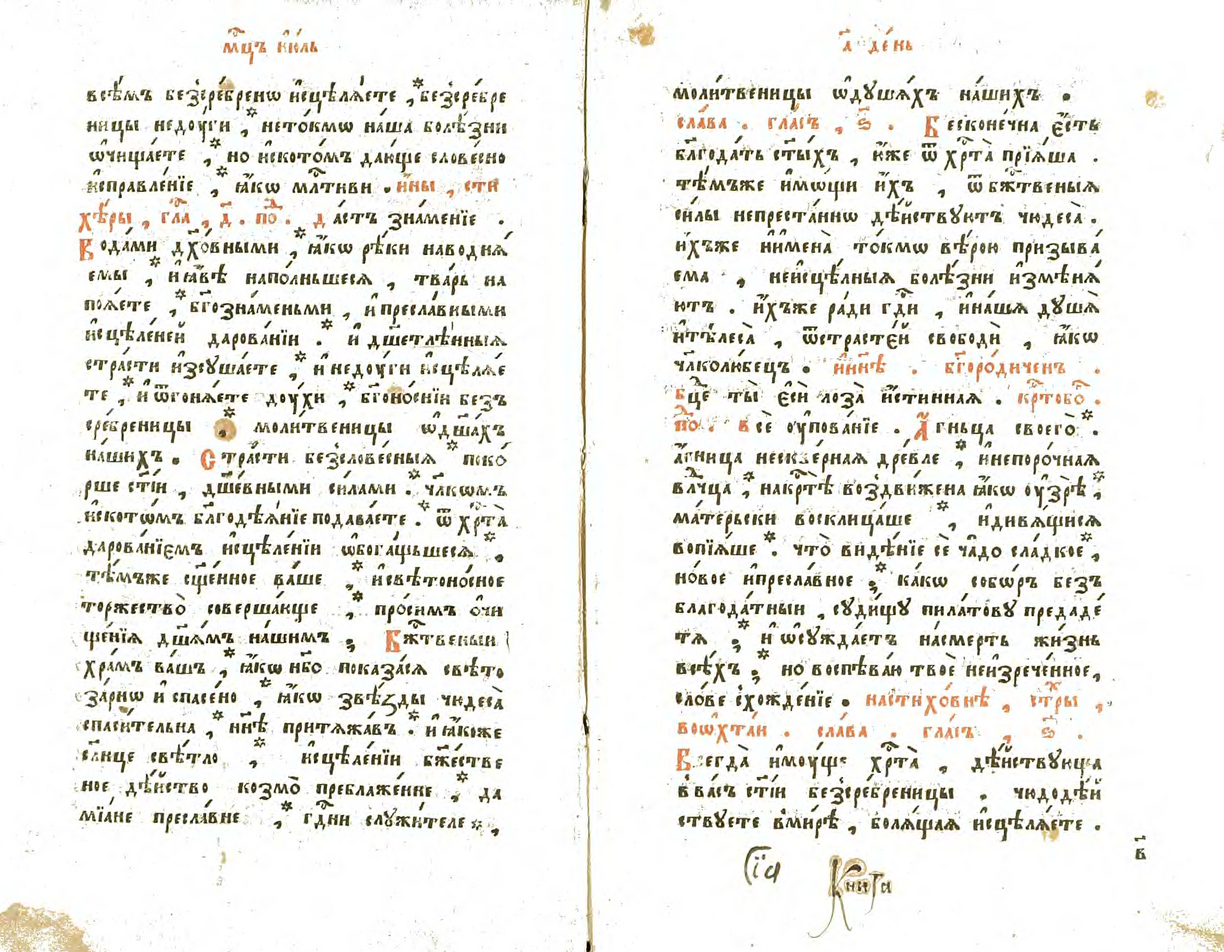 мⷭ҇цъ ию́ль
всѣ́мъ безсре́бренѡ исцѣлѧ́ете , безсребре
ницы недоу́ги , нетокмѡ на́ша болѣ́зни
ѡчища́ете , но иското́мъ даю́ще слове́сно
исправле́нїе , ꙗ́кѡ млⷭ҇тиви . и́ны , сти
хѣ́ры , гла , д҃ . по . да́стъ зна́менїе .
Вода́ми дх҃о́вными , ꙗ́кѡ рѣ́ки наводнѧ́
емы , иꙗ́вѣ наполньшесѧ , тва́рь на
поѧ́ете , бг҃озна́меньми , и пресла́вными
исцѣле́ней дарова́нїи . и дш҃етлѣ́нныѧ
стра́сти изсуша́ете , и недоу́ги исцѣлѧ́е
те , и ѿгонѧ́ете доу́хи , бг҃оно́снїи безъ
сре́бреницы . моли́твеницы ѡ дш҃а́хъ
на́шихъ . Стра́сти безслове́сныѧ поко́
рше ст҃і́и , дш҃е́вными си́лами . чл҃кѡмъ
искотѡ́мъ бл҃годѣѧ́нїе подава́ете . ѿ хрⷭ҇та̀
дарова́нїемъ исцѣле́нїи ѡбога́щьшесѧ ,
тѣ́мъже сщ҃е́нное ва́ше , исвѣтоно́сное
торжество̀ соверша́юще , про́симъ ѻ҆чи
ще́нїѧ дш҃а́мъ на́шимъ , Бжⷭ҇твеныи
хра́мъ ва́шъ , ꙗ́кѡ нб҃о показа́сѧ свѣто
за́рнѡ и спасе́но , ꙗ́кѡ звѣ́зды чюдеса̀
спаси́телна , нн҃ѣ притѧжа́въ . и ꙗ́коже
сл҃нце свѣ́тло , исцѣле́нїи бжⷭ҇тве
ное дѣ́йство козмо̀ пребла́жѐнне , да
мїа́не пресла́вне , гдⷭ҇ни служи́теле ,
а҃ де́нь
моли́твеницы ѡдуша́хъ на́шихъ .
сла́ва . гла́съ , ѕ҃ . Бесконе́чна є҆́сть
бл҃года́ть ст҃ы́хъ , ю́же ѿ хрⷭ҇та̀ прїѧ́ша .
тѣ́мъже и́мѡщи и́хъ , ѿ бжⷭ҇твеныѧ
си́лы непреста́ннѡ дѣ́йствуютъ чюдеса̀ .
и́хъже и́мена̀ то́кмѡ вѣ́рою призыва́
ема , неисцѣ́лныѧ болѣ́зни измѣнѧ́
ютъ . и́хъже ради гдⷭ҇и , ина́шѧ душа̀
итѣлеса̀ , ѿстрасте́й свободи , ꙗ́кѡ
чл҃колю́бецъ . ны́нѣ . бг҃оро́диченъ .
бц҃е ты̀ є҆си лоза̀ и́стинная . крⷭ҇тобо .
по . все оу҆пова́нїе . А҆́гньца своего̀ .
а҆́гница нескве́рная дре́вле , инепоро́чная
влⷣчца , накрⷭ҇тѣ́ воздви́жена ꙗ́кѡ оу҆зрѣ̀ ,
ма́терьски восклица́ше , идивѧ́щисѧ
вопїѧ́ше . что̀ ви́дѣ́нїе сѐ ча́до сла́дкое ,
но́вое ипресла́вное , ка́кѡ собѡ́ръ безъ
благода́тныи , суди́щу пила́тову предаде́
тѧ , и ѡсужда́етъ насме́рть жи́знь
всѣ́хъ , но воспѣва́ю твоѐ неизрече́нное ,
сло́ве схожде́нїе . настихо́внѣ , стⷯры ,
воѡхта́и . сла́ва . гла́съ , ѕ҃ .
Всегда̀ имоу́ще хрⷭ҇та̀ , дѣ́йствующа
вва́съ ст҃і́и безсре́бреницы . чюдодѣ́й
ствуете вми́рѣ , болѧ́щая исцѣлѧ́ете .
в҃
Сїа Книга